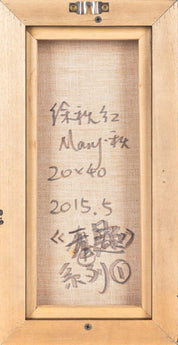 徐秋红
Mary·秋
20×40
2015.5
系列①